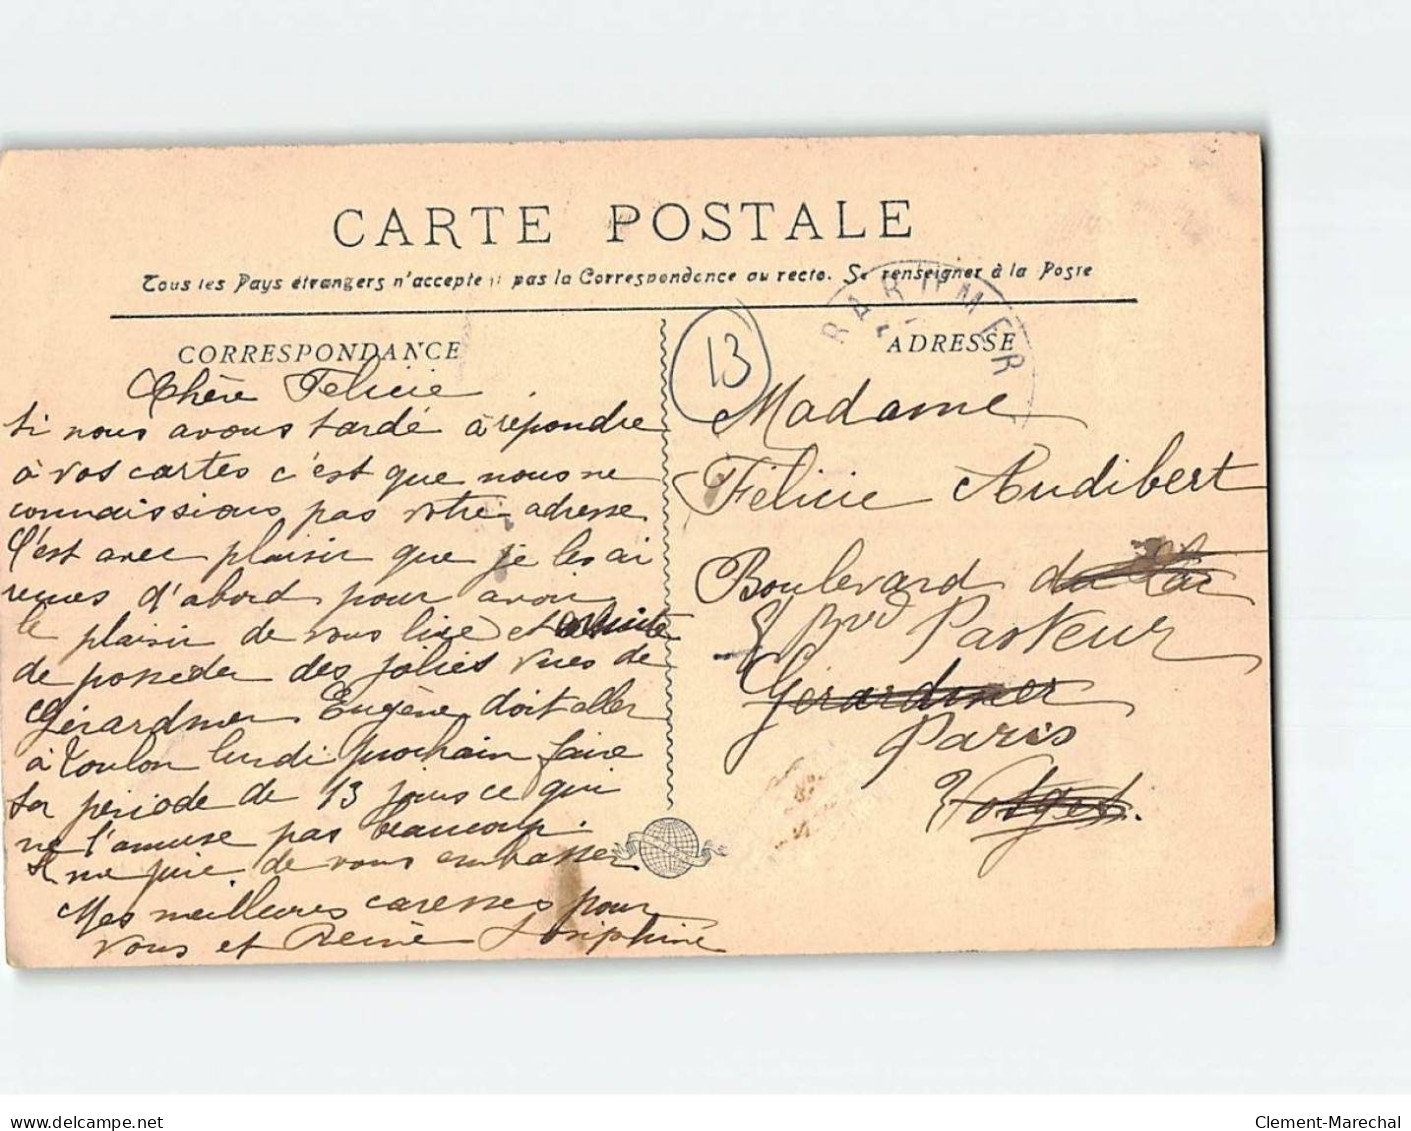 CARTE POSTALE
Tous les Pays étrangers n'acceptent pas la Correspondance au recto. Se renseigner à la Poste
CORRESPONDANCE
Chère Félicie
Si nous avons tardé à répondre
à vos cartes c'est que nous ne
connaissions pas votre adresse
C'est avec plaisir que je les ai
reçues d'abord pour avoir
le plaisir de vous lire et ensuite
de posséder des jolies vues de
Gérardmer Eugène doit aller
à Toulon lundi prochain faire
sa période de 13 jours ce qui
ne l'amuse pas beaucoup.
Il me prie de vous embasser
Mes meilleures caresses pour
vous et Reine Joséphine
13
RARDMER
ADRESSE
Madame
Félicie Audibert
Boulevard du Lac
5 Bvd Pasteur
Gérardmer
Paris
Vosges.
Clement-Marechal